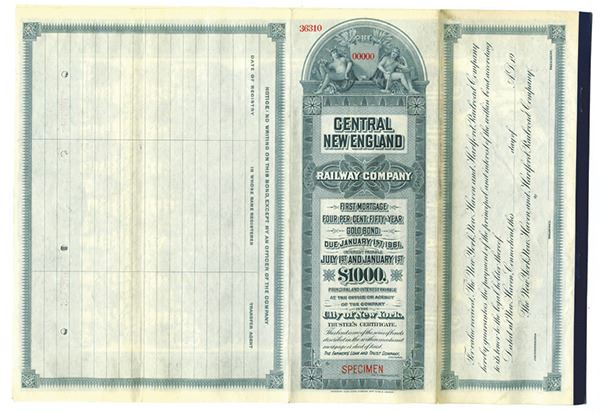 NOTICE: NO WRITING ON THIS BOND, EXCEPT BY AN OFFICER OF THE COMPANY
DATE OF REGISTRY
IN WHOSE NAME REGISTERED
TRANSFER AGENT
36310
00000
CENTRAL
NEW ENGLAND
RAILWAY COMPANY
FIRST MORTGAGE
FOUR PER CENT. FIFTY-YEAR
GOLD BOND
DUE JANUARY 1ST, 1961.
INTEREST PAYABLE
JULY 1ST AND JANUARY 1ST
$1000.
PRINCIPAL AND INTEREST PAYABLE
AT THE OFFICE OR AGENCY
OF THE COMPANY
IN THE
City of New York.
TRUSTEE'S CERTIFICATE.
This bond is one of the series of bonds
described in the within mentioned
mortgage or deed of trust.
THE FARMERS' LOAN AND TRUST COMPANY,
SPECIMEN
For value received, The New York, New Haven and Hartford Railroad Company
hereby guarantees the payment of the principal and interest of the within bond according
to its tenor to the legal holder thereof.
Dated at New Haven, Connecticut this day of A.D. 19
The New York, New Haven and Hartford Railroad Company,